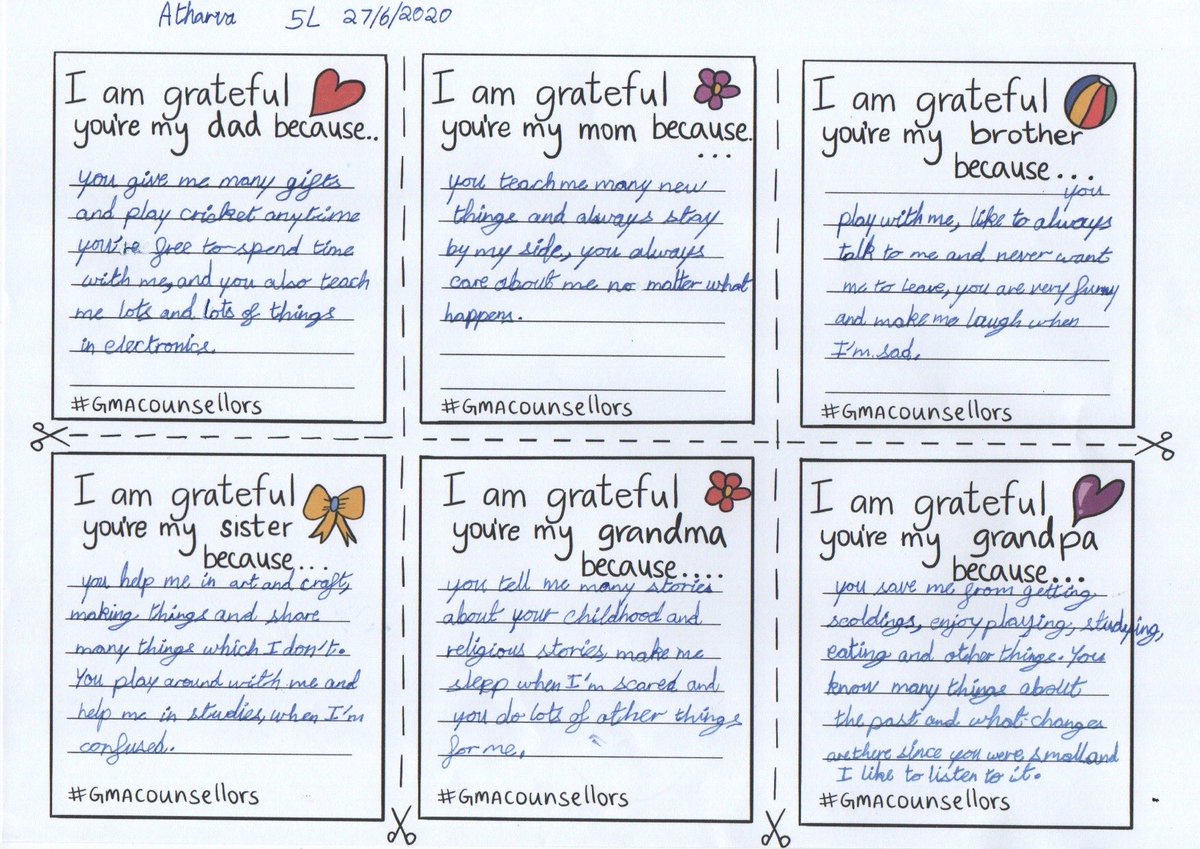 Atharva 5L 27/6/2020
I am grateful
you're my dad because..
you give me many gifts
and play cricket anytime
you're free to spend time
with me, and you also teach
me lots and lots of things
in electronics.
#GMACOUNSELLORS
I am grateful
you're my mom because.
...
you teach me many new
things and always stay
by my side, you always
care about me no matter what
happens.
#GMACOUNSELLORS
I am grateful
you're my brother
because...
you
play with me, like to always
talk to me and never want
me to leave, you are very funny
and make me laugh when
I'm sad.
#GMACOUNSELLORS
I am grateful
you're my sister
because...
you help me in art and craft,
making things and share
many things which I don't.
You play around with me and
help me in studies, when I'm
confused.
#GMACOUNSELLORS
I am grateful
you're my grandma
because....
you tell me many stories
about your childhood and
religious stories, make me
slepp when I'm scared and
you do lots of other things
for me.
#GMACOUNSELLORS
I am grateful
you're my grandpa
because...
you save me from getting
scoldings, enjoy playing, studying,
eating and other things. You
know many things about
the past and what changes
are there since you were small and
I like to listen to it.
#GMACOUNSELLORS